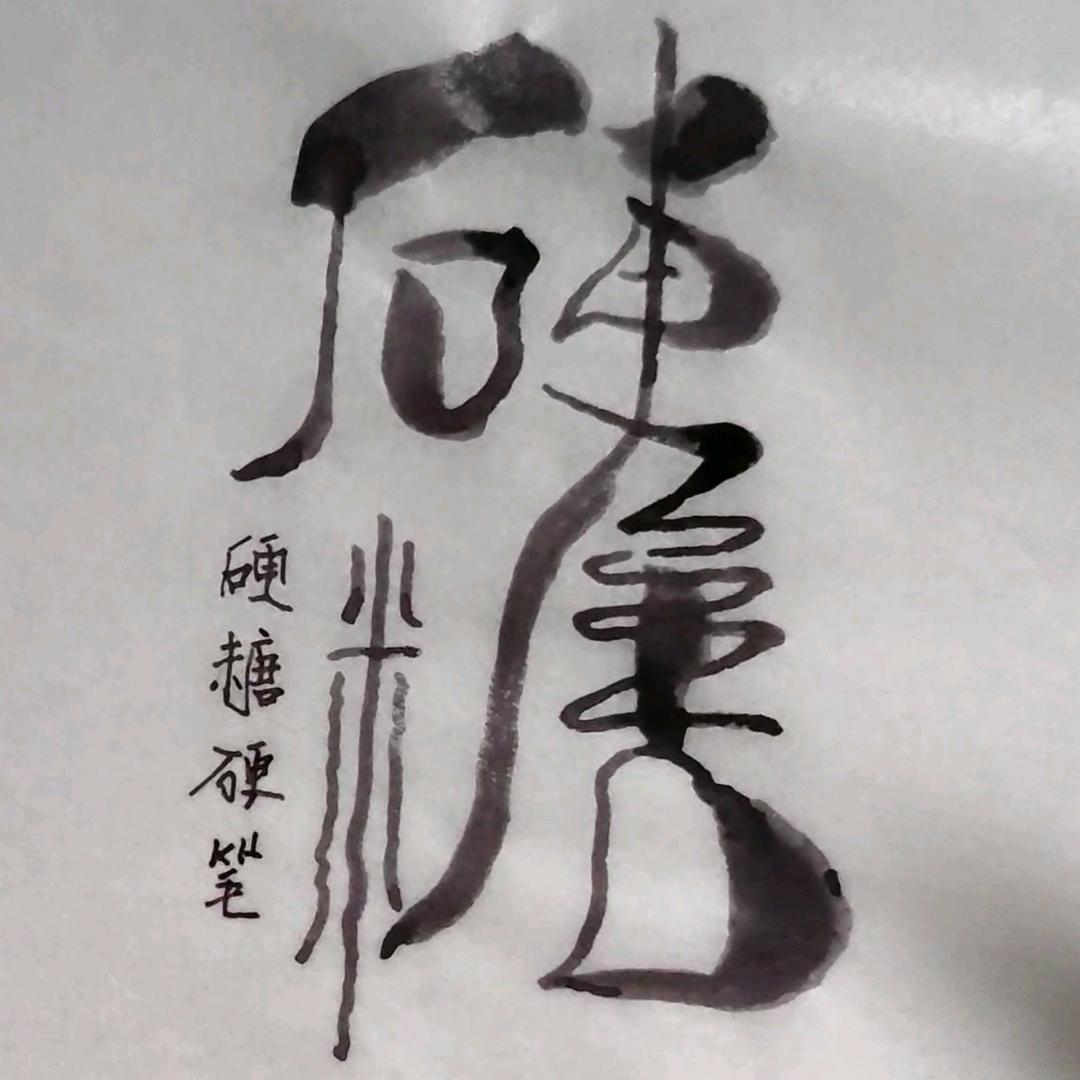 硬糖
硬糖硬笔